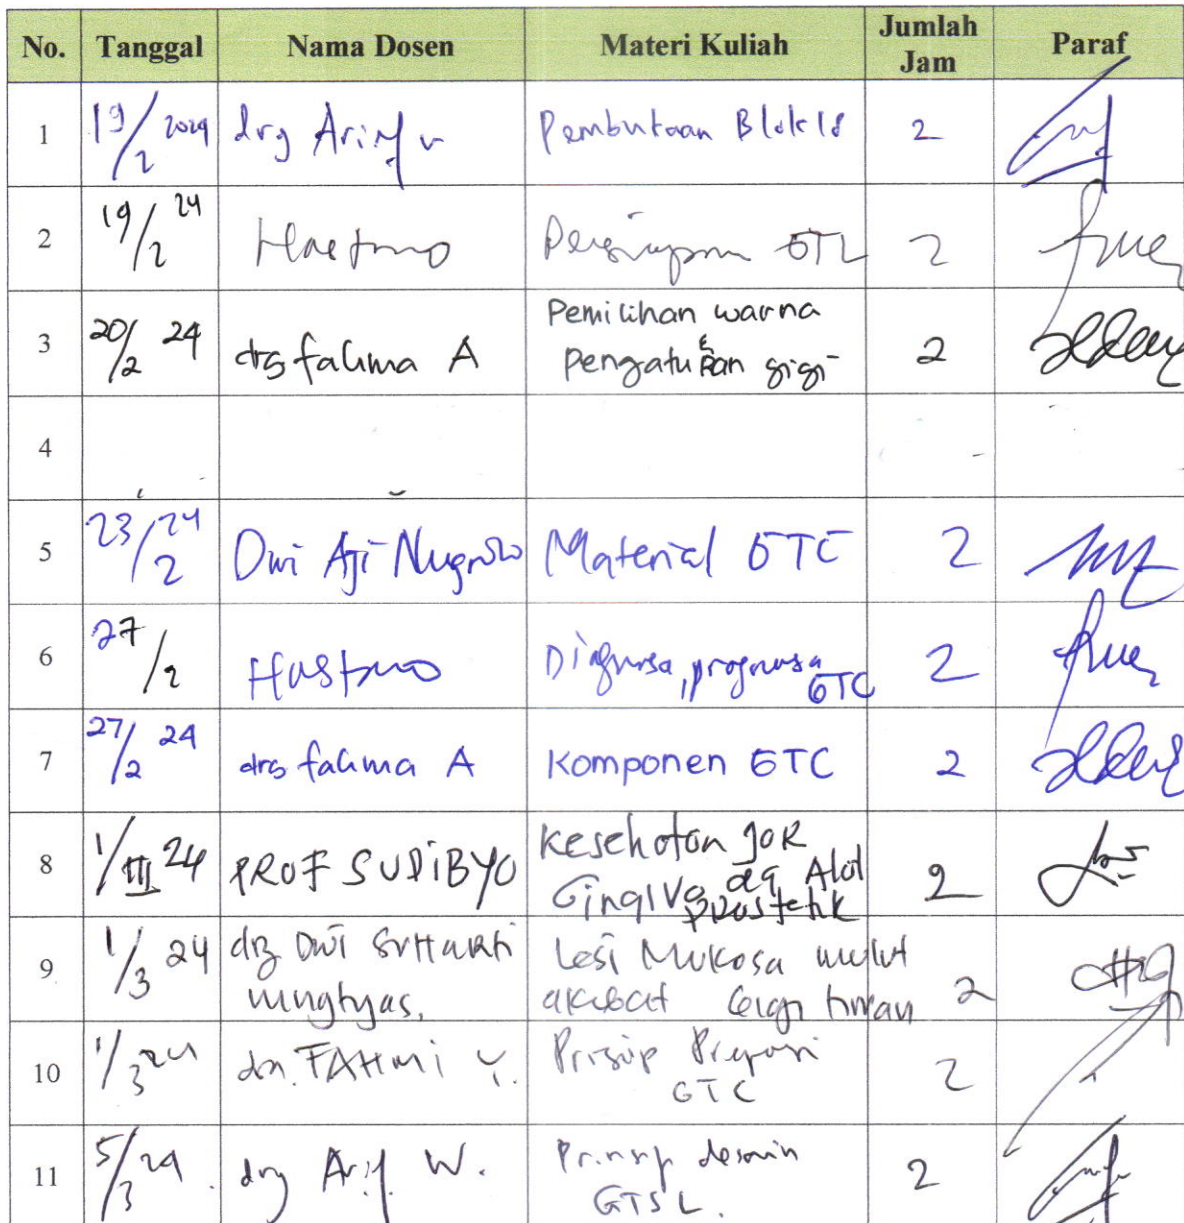 No. Tanggal Nama Dosen Materi Kuliah Jumlah Jam Paraf
1 19/2 2024 drg Arif W Pembukaan Blok 18 2
2 19/2 24 Hastmo GTL 2
3 20/2 24 drg fahma A Pemilihan warna
& Pengaturan gigi 2
4
5 23/2 24 Dwi Aji Nugroho Material GTC 2
6 27/2 Hastmo Diagnosa, prognosa GTC 2
7 27/2 24 drg fahma A Komponen GTC 2
8 1/III 24 PROF SUDIBYO Kesehatan JaR
Gingiva dg Alat
prostetik 2
9 1/3 24 drg Dwi SrHarti
ningtyas, Lesi Mukosa mulut
akibat Gigi tiruan 2
10 1/3 24 FAHmi Y. Prinsip Preparasi
GTC 2
11 5/3 24. drg Arif W. Prinsip desain
GTSL. 2